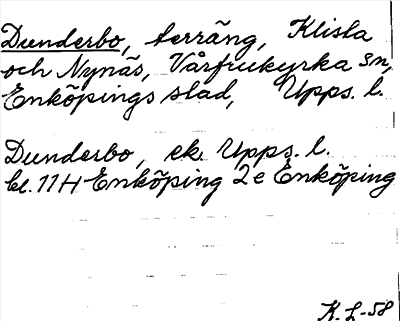 Dunderbo, terräng, Klista
och Nynäs, Vårfrukyrka sn,
Enköpings stad, Upps. l.
Dunderbo, ek. Upps. l.
bl. 11H Enköping 2e Enköping
K. L-58